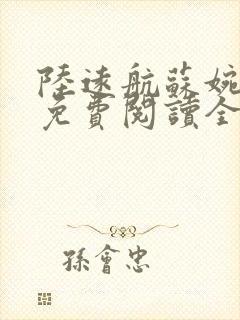 陸遠航蘇婉
免費閱讀全
孫會忠